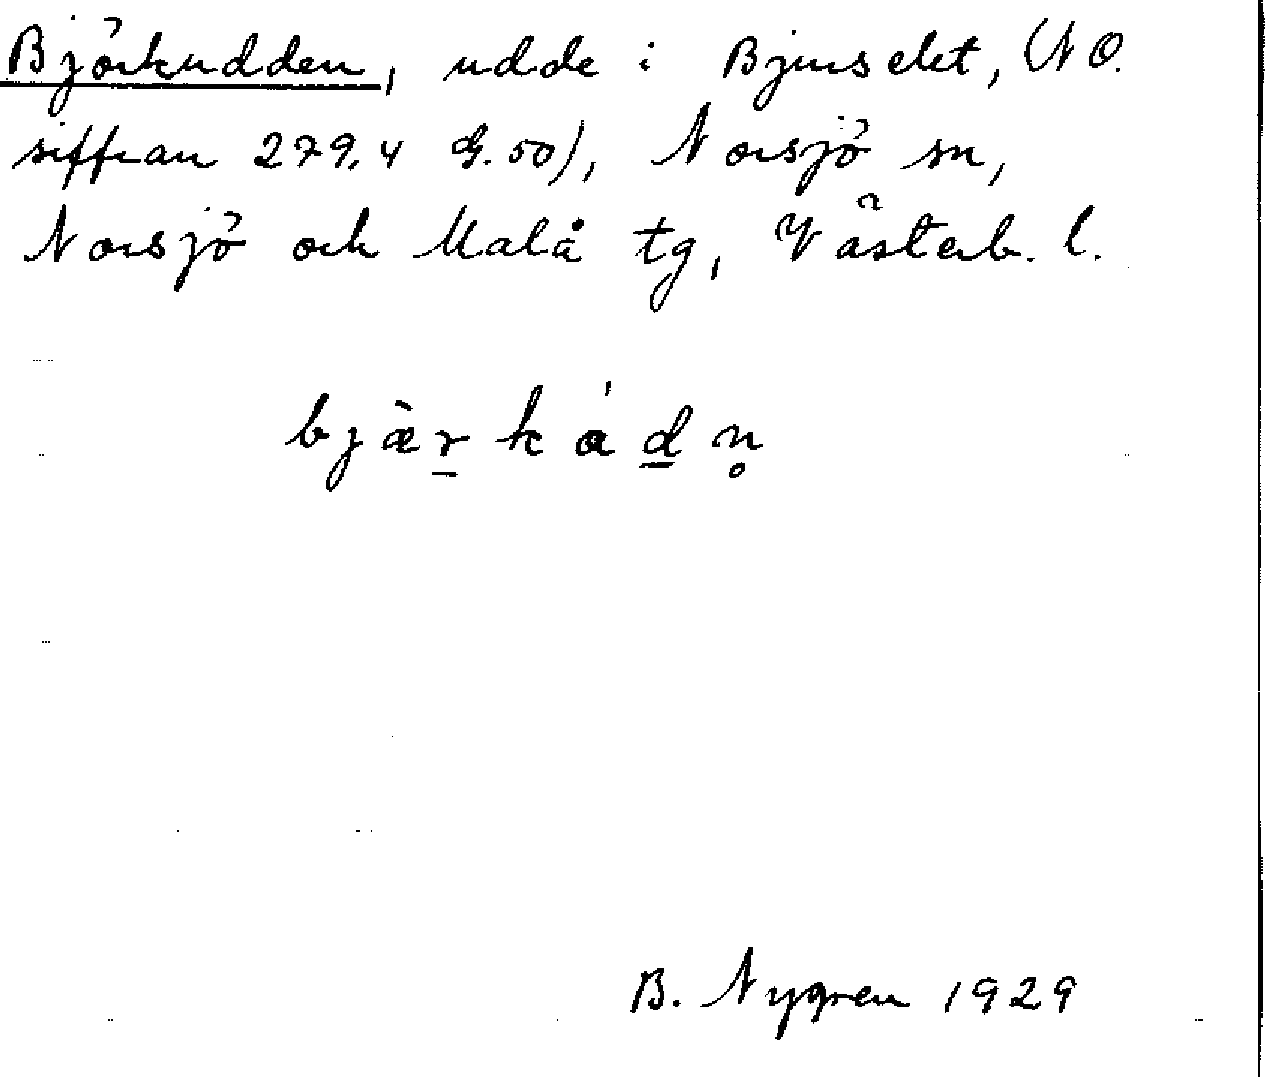 Björkudden, udde i Bjurselet, (NO.
siffran 279,4 G.50), Norsjö sn,
Norsjö och Malå tg, Västerb. l.
bjæ̀r̲kád̲n̥
B. Nygren 1929